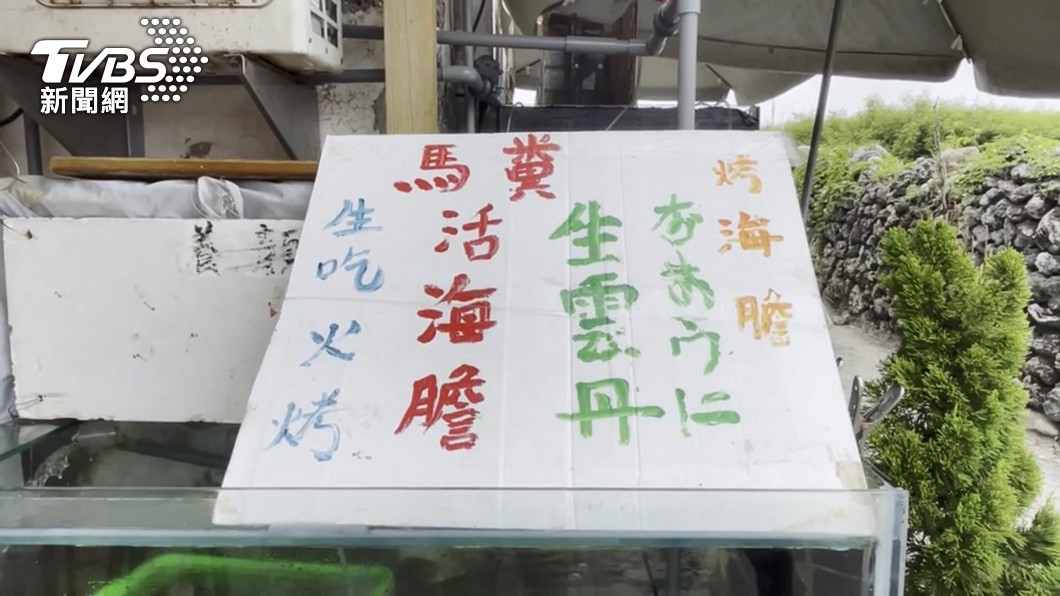 TVBS
新聞網
生吃火烤
馬糞
活海膽
生雲丹
なまうに
烤海膽
養